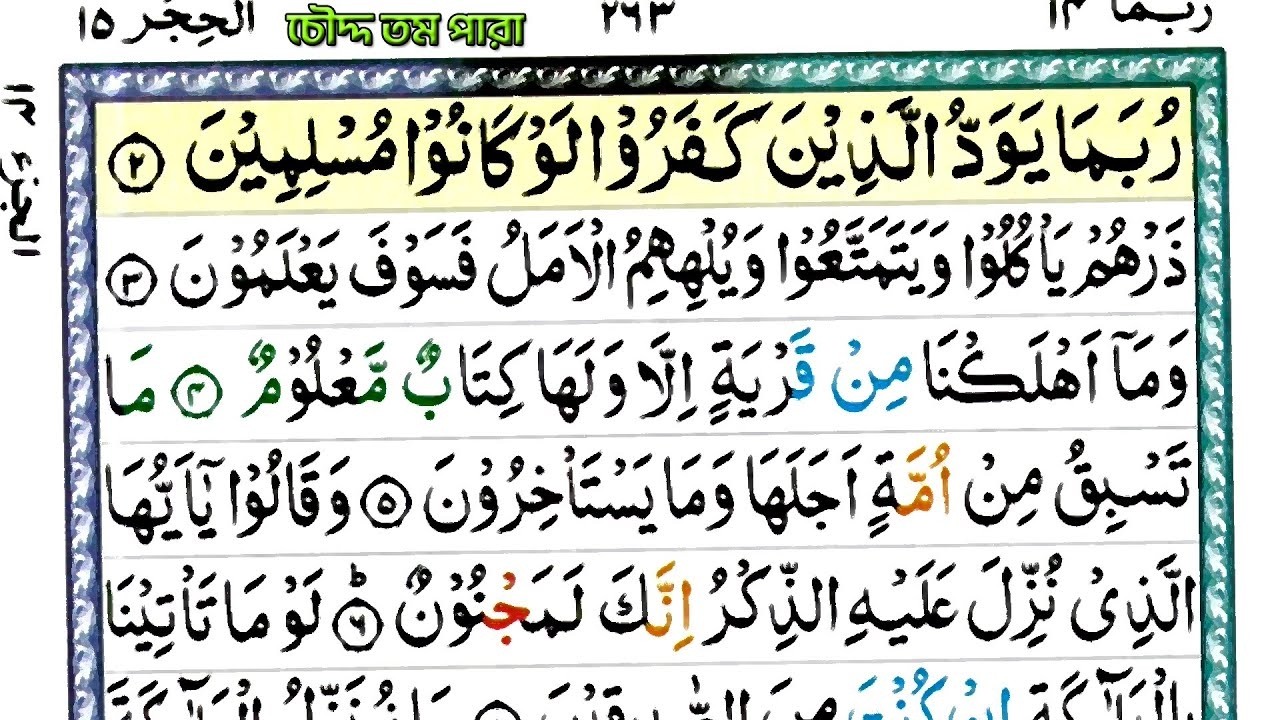 ربما ١٤ ٢٦٣ চৌদ্দ তম পারা الحِجْر ١٥
رُبَمَا يَوَدُّ الَّذِيْنَ كَفَرُوْا لَوْ كَانُوْا مُسْلِمِيْنَ ۝٢
ذَرْهُمْ يَاْكُلُوْا وَيَتَمَتَّعُوْا وَيُلْهِهِمُ الْاَمَلُ فَسَوْفَ يَعْلَمُوْنَ ۝٣
وَمَآ اَهْلَكْنَا مِنْ قَرْيَةٍ اِلَّا وَلَهَا كِتَابٌ مَّعْلُوْمٌ ۝٤ مَا
تَسْبِقُ مِنْ اُمَّةٍ اَجَلَهَا وَمَا يَسْتَاْخِرُوْنَ ۝٥ وَقَالُوْا يٰٓاَيُّهَا
الَّذِىْ نُزِّلَ عَلَيْهِ الذِّكْرُ اِنَّكَ لَمَجْنُوْنٌ ۝٦ؕ لَوْ مَا تَاْتِيْنَا